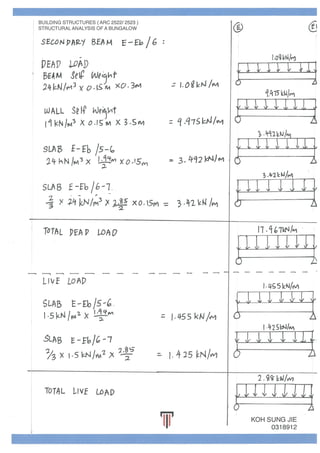 BUILDING STRUCTURES ( ARC 2522/ 2523 )
STRUCTURAL ANALYSIS OF A BUNGALOW
SECONDARY BEAM E-Eb/6 :
E Eb
DEAD LOAD
BEAM Self Weight
24 kN/m³ x 0.15m x 0.3m = 1.08 kN/m
1.08 kN/m
WALL Self Weight
19 kN/m³ x 0.15m x 3.5m = 9.975 kN/m
9.975 kN/m
SLAB E-Eb/5-6
24 kN/m³ x 1.94m/2 x 0.15m = 3.492 kN/m
3.492 kN/m
SLAB E-Eb/6-7
2/3 x 24 kN/m³ x 2.85/2 x 0.15m = 3.42 kN/m
3.42 kN/m
TOTAL DEAD LOAD
17.967 kN/m
LIVE LOAD
SLAB E-Eb/5-6
1.5 kN/m² x 1.94m/2 = 1.455 kN/m
1.455 kN/m
SLAB E-Eb/6-7
2/3 x 1.5 kN/m² x 2.85/2 = 1.425 kN/m
1.425 kN/m
TOTAL LIVE LOAD
2.88 kN/m
KOH SUNG JIE
0318912